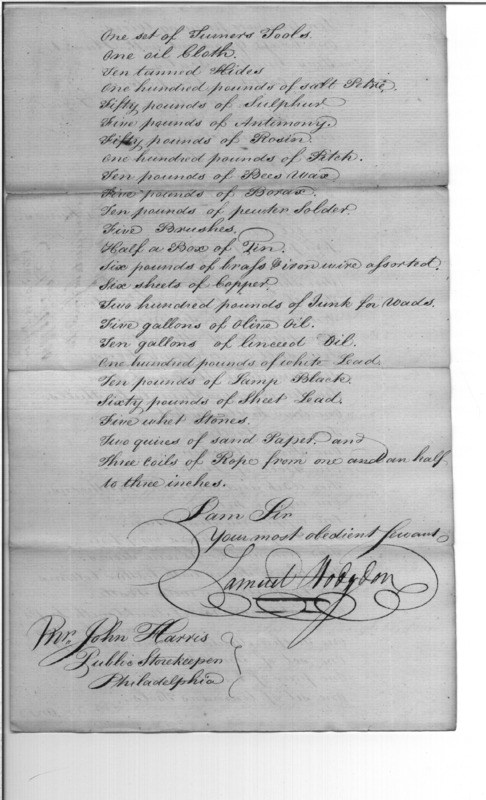 One set of Turners Tools.
One oil Cloth.
Ten tanned Hides
One hundred pounds of salt Petre,
Fifty pounds of Sulphur
Five pounds of Antimony.
Fifty pounds of Rosin.
One hundred pounds of Pitch.
Ten pounds of Bees Wax
Five pounds of Borax.
Ten pounds of pewter Solder
Five Brushes.
Half a Box of Tin.
Six pounds of brass & iron wire assorted.
Six sheets of Copper.
Two hundred pounds of Junk for Wads.
Five gallons of Olive Oil.
Ten gallons of linceed Oil.
One hundred pounds of white Lead
Ten pounds of Lamp Black.
Sixty pounds of Sheet Lead.
Five whet Stones.
Two quires of sand Paper. and
Three Coils of Rope from one and an half
to three inches.
I am Sir
Your most obedient servant
Samuel Hodgdon
Mr. John Harris
Public Storekeeper
Philadelphia